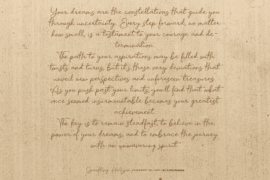 Your dreams are the constellations that guide you
through uncertainty. Every step forward, no matter
how small, is a testament to your courage and de-
termination.
"The path to your aspirations may be filled with
twists and turns, but it's these very deviations that
unveil new perspectives and unforeseen treasures.
As you push past your limits, you'll find that what
once seemed insurmountable becomes your greatest
achievement.
"The key is to remain steadfast, to believe in the
power of your dreams, and to embrace the journey
with an unwavering spirit."